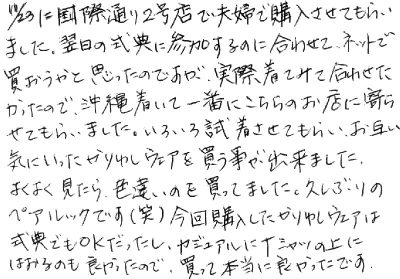 11/23に国際通り2号店で夫婦で購入させてもらい
ました。翌日の式典に参加するのに合わせて、ネットで
買おうかと思ったのですが、実際着てみて合わせた
かったので、沖縄着いて一番にこちらのお店に寄ら
せてもらいました。いろいろ試着させてもらい、お互い
気にいったかりゆしウェアを買う事が出来ました。
よくよく見たら、色違いのを買ってました。久しぶりの
ペアルックです(笑)今回購入したかりゆしウェアは
式典でもOKだったし、カジュアルにTシャツの上に
はおるのも良かったので、買って本当に良かったです。